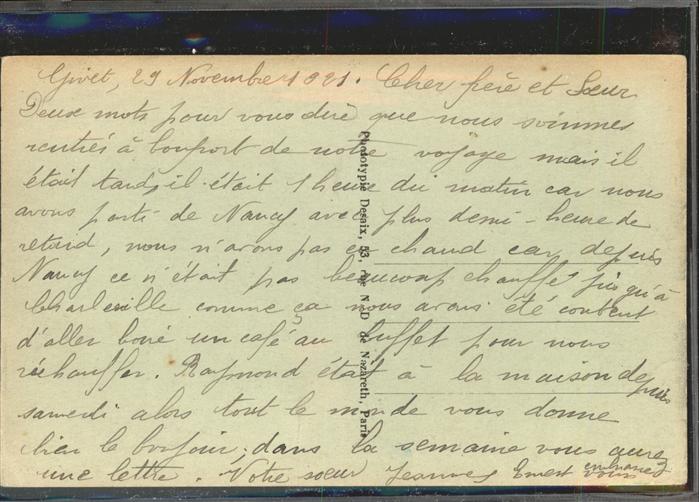 Givet, 29 Novembre 1921. Cher frère et Sœur
Deux mots pour vous dire que nous soimmes
rentrés à bonport de notre voyage mais il
était tard, il était 1 heure du matin car nous
avons parti de Nancy avec plus demi-heure de
retard, nous n'avons pas eu chaud car depuis
Nancy ce n'était pas beaucoup chauffé jusqu'à
Charleville comme ça nous avons été content
d'aller boire un café au buffet pour nous
réchauffer. Raymond était à la maison depuis
samedi alors tout le monde vous donne
bien le bonjour, dans la semaine vous aurez
une lettre. Votre sœur Jeanne Ernest vous
embrassez
Phototypie Desaix, 53, rue N.-D. de Nazareth, Paris